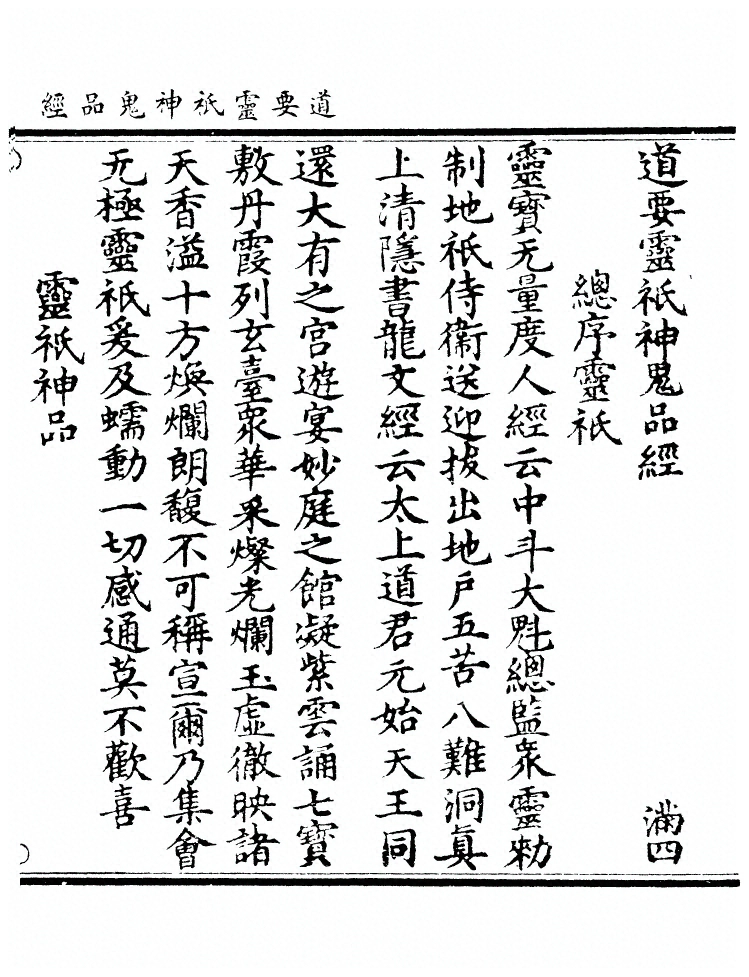 道要靈祇神鬼品經
道要靈祇神鬼品經　滿四
總序靈祇
靈寶无量度人經云中斗大魁總監衆靈勑
制地祇侍衞送迎拔出地戶五苦八難洞眞
上清隱書龍文經云太上道君元始天王同
還大有之宮遊宴妙庭之館凝紫雲誦七寶
敷丹霞列玄臺衆華采燦光爛玉虛徹映諸
天香溢十方煥爛朗馥不可稱宣爾乃集會
无極靈祇爰及蠕動一切感通莫不歡喜
靈祇神品